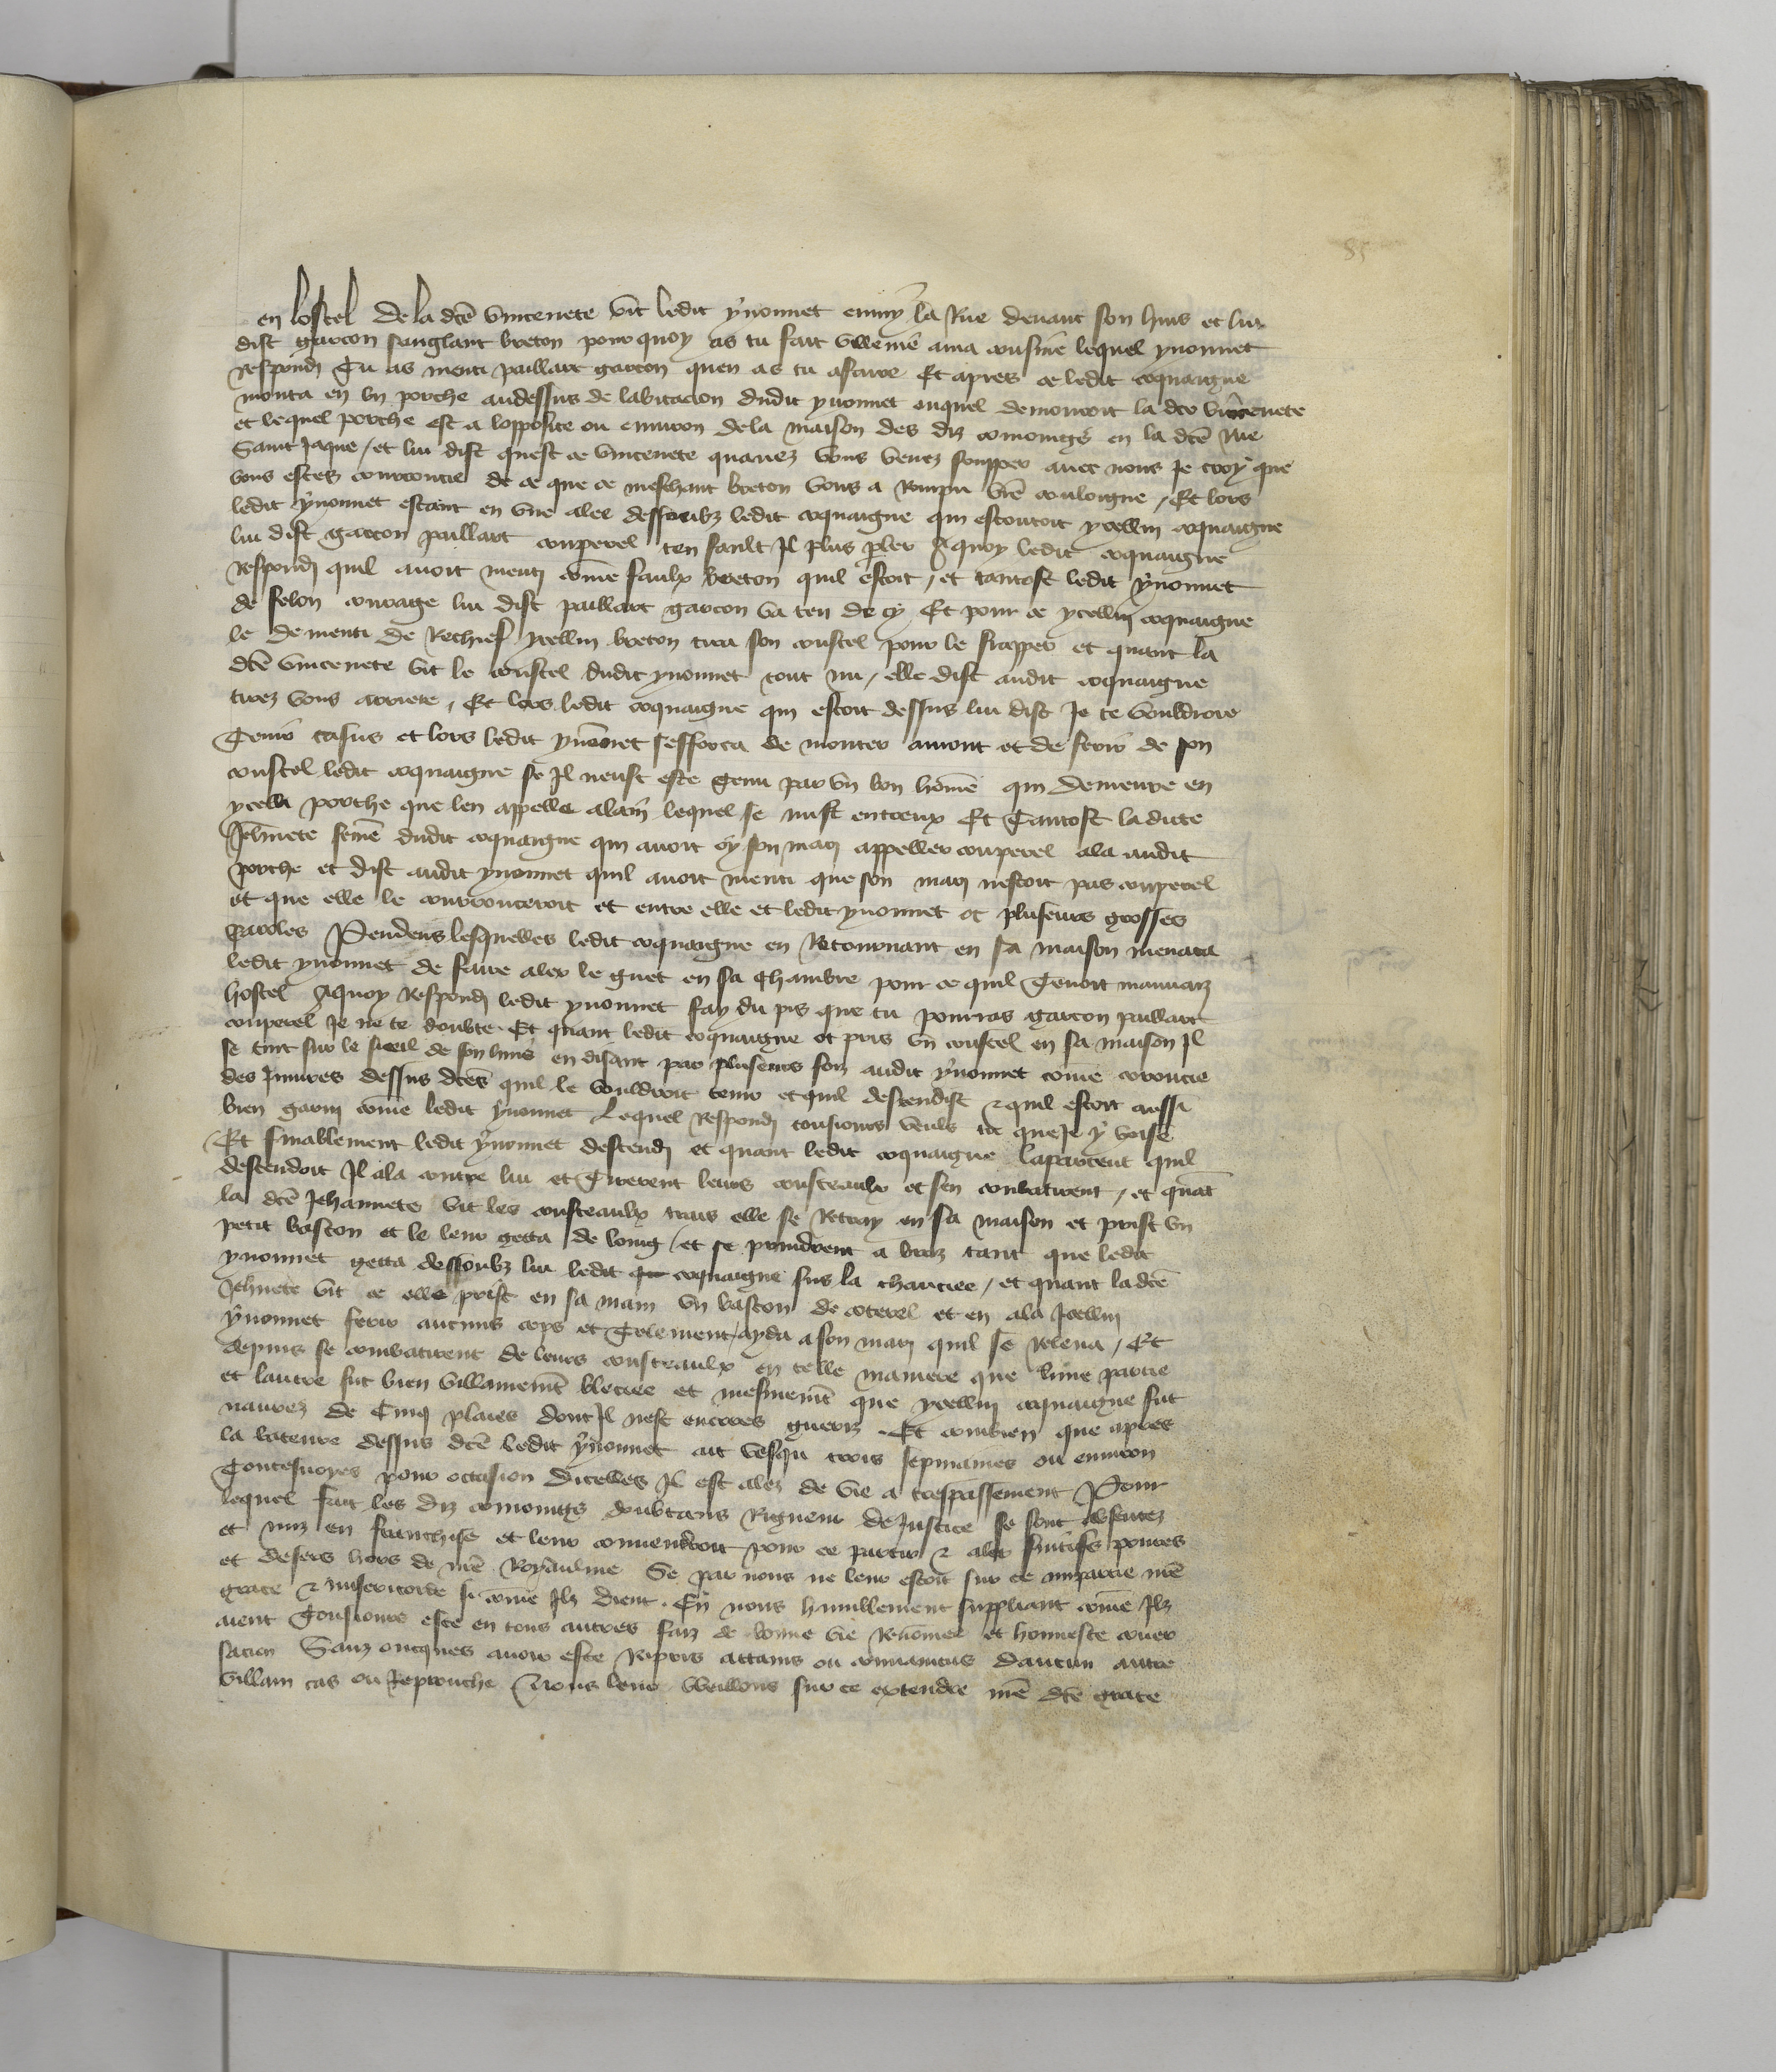 85
en lostel de la dcē Vincenete vit ledit yvonnet enmy la Rue devant son huis et lui
dist garcon sanglant breton pour quoy as tu fait villenie a ma cousine lequel yvonnet
Respondi Tu as menti paillart garcon quen as tu afaire Et apres ce ledit coquaigne
monta en un porche audessus de labitacion dudit yvonnet ouquel demouroit la dce Vincenete
et lequel porche est a lopposite ou environ de la maison des diz conioings en la dcē Rue
Saint Jaque / et lui dist quest ce Vincenete quavez vous venez soupper avec nous Je croy que
vous estes courroucie de ce que ce meschant breton vous a Rompu vrē couloigne / Et lors
ledit yvonnet estant en une alee dessoubz ledit coquaigne qui escoutoit ycellui coquaigne
lui dist garcon paillart couperel ten fault Il plus pler Aquoy ledit coquaigne
Respondi quil avoit menti cōme faulx breton quil estoit / et tantost ledit yvonnet
de felon courage lui dist paillart garcon va ten de cy Et pour ce ycellui coquaigne
le dementi de Rechief ycellui breton tira son coustel pour le frapper et quant la
dcē Vincenete vit le coustel dudit yvonnet tout nu / elle dist audit coquaigne
tirez vous arriere / Et lors ledit coquaigne qui estoit dessus lui dist Je te vouldroie
Tenir casus et lors ledit yvonnet sefforca de monter amont et de ferir de son
coustel ledit coquaigne se Il neust este tenu par un bon hōme qui demeure en
ycelli porche que len appelle alain lequel se mist entreux Et Tantost la dicte
Jehnete feme dudit coquaigne qui avoit oy son mari appeller couperel ala audit
porche et dist audit yvonnet quil avoit menti que son mari nestoit pas couperel
et que elle le courrouceroit et entre elle et ledit yvonnet ot plusieurs grosses
paroles Pendens lesquelles ledit coquaigne en Retournant en sa maison menaca
ledit yvonnet de faire aler le guet en sa chambre pour ce quil Tenoit mauvaiz
hostel Aquoy Respondi ledit yvonnet fay du pis que tu pourras garcon paillart
couperel Je ne te doubte. Et quant ledit coquaigne ot pris un coustel en sa maison Il
se tint sur le sueil de son huis en disant par plusieurs foiz audit yvonnet cōme coroucie
des Iniures dessus dcēs quil le vouldroit tenir et quil descendist & quil estoit aussi
bien garni cōme ledit yvonnet Lequel Respondi tousiours veulx tu que Je y voise
Et finablement ledit yvonnet descendi et quant ledit coquaigne laparceut quil
descendoit Il ala contre lui et Tirerent leurs cousteaulx et sen combatirent / et quāt
la dcē Jehannete vit les cousteaulx traiz elle se Retray en sa maison et prist un
petit baston et le leur getta de loing / et se prindrent a braz tant que ledit
yvonnet getta dessoubz lui ledit coquaigne sus la chauciee / et quant ladcē
Jehnete vit ce elle prist en sa main un baston de coterel et en ala Icellui
yvonnet ferir aucuns cops et Telement ayda a son mari quil se Releva / Et
depuis se combatirent de leurs cousteaulx en telle maniere que lune partie
et lautre fut bien villainemēt bleciee et mesmemēt que ycellui coquaigne fut
navrez de Cinq plaies dont Il nest encores gueriz . Et combien que apres
la bateure dessus dcē ledit yvonnet ait vesqu trois sepmaines ou environ
Toutesvoyes pour occasion dicelles Il est alez de vie a trespassement Pour
lequel fait les diz conioings doubtans Rigueur de Justice se sont absentez
et miz en franchise et leur convendroit pour ce partir & aler fuitifs povres
et desers hors de nrē Royaulme Se par nous ne leur estoit sur ce impartie nrē
grace & misericorde si cōme Ilz dient . En nous humblement suppliant cōme Ilz
aient Tousiours este en tous autres faiz de bonne vie Renōmee et honneste conver
sacion Sanz oncques avoir este Repris attains ou convaincus daucun autre
villain cas ou Reprouche Nous leur vueillons sur ce extendre nrē dcē grace